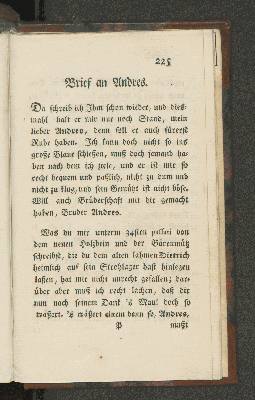 225
Brief an Andres.
Da schreib ich Ihm schon wieder, und dies-
mahl halt er mir nur noch Stand, mein
lieber Andres, denn soll er auch fürerst
Ruhe haben. Ich kann doch nicht so ins
große Blaue schießen, muß doch jemand ha-
ben nach dem ich ziele, und er ist mir so
recht bequem und paßlich, nicht zu dum und
nicht zu klug, und sein Gemüht ist nicht böse.
Will auch Brüderschaft mit dir gemacht
haben, Bruder Andres.
Was du mir unterm 24sten passati von
dem neuen Holzbein und der Bärenmütz
schreibst, die du dem alten lahmen Dietrich
heimlich auf sein Strohlager hast hinlegen
lassen, hat mir nicht unrecht gefallen; dar-
über aber muß ich recht lachen, daß dir
nun nach seinem Dank 's Maul doch so
wässert. 's wässert einem denn so, Andres,
P
mußt